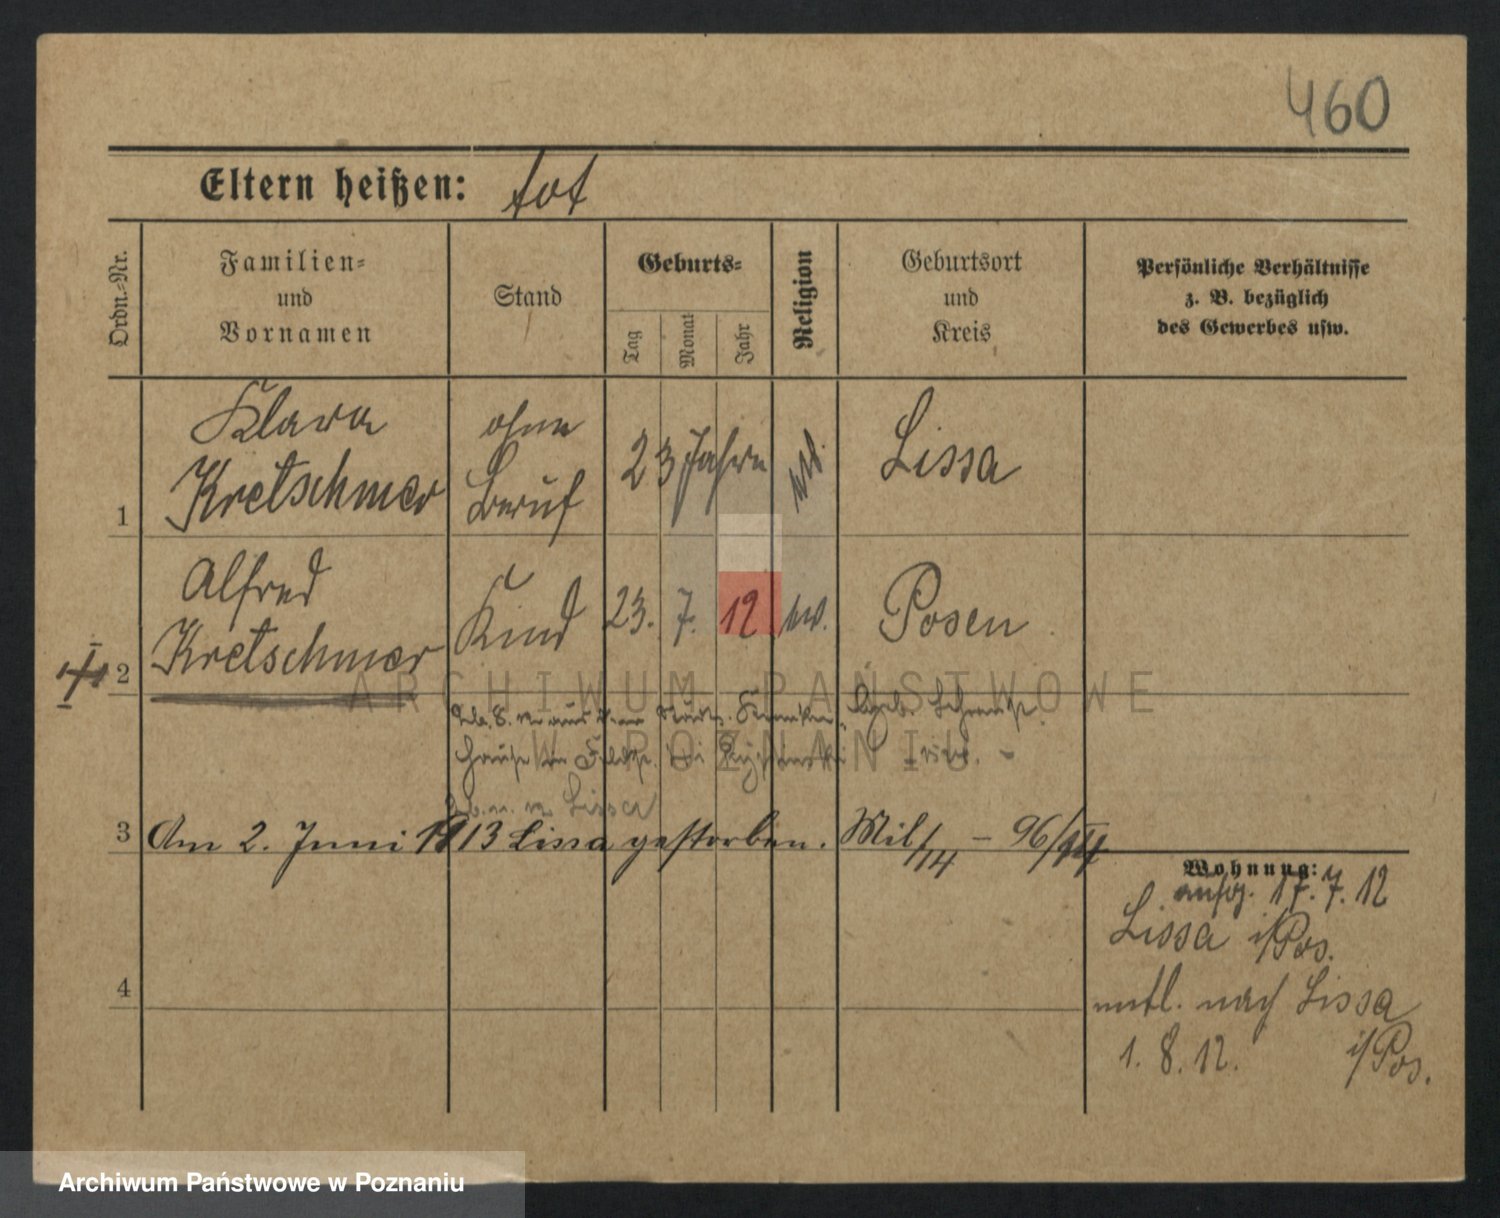 460
Eltern heißen: tot
Ordn.-Nr.
Familien-
und
Vornamen
Stand
Geburts-
Tag
Monat
Jahr
Religion
Geburtsort
und
Kreis
Persönliche Verhältnisse
z. B. bezüglich
des Gewerbes usw.
1
Klara
Kretschmer
ohne
Beruf
23 Jahre
Lissa
2
Alfred
Kretschmer
Kind
23. 7. 12
ev.
Posen
ARCHIWUM PAŃSTWOWE
W POZNANIU
Lissa
3
Am 2. Juni 1913 Lissa gestorben. Mil/14 - 96/14
Wohnung:
17. 7. 12
Lissa i/Pos.
4
entl. nach Lissa
1. 8. 12. i/Pos.
Archiwum Państwowe w Poznaniu